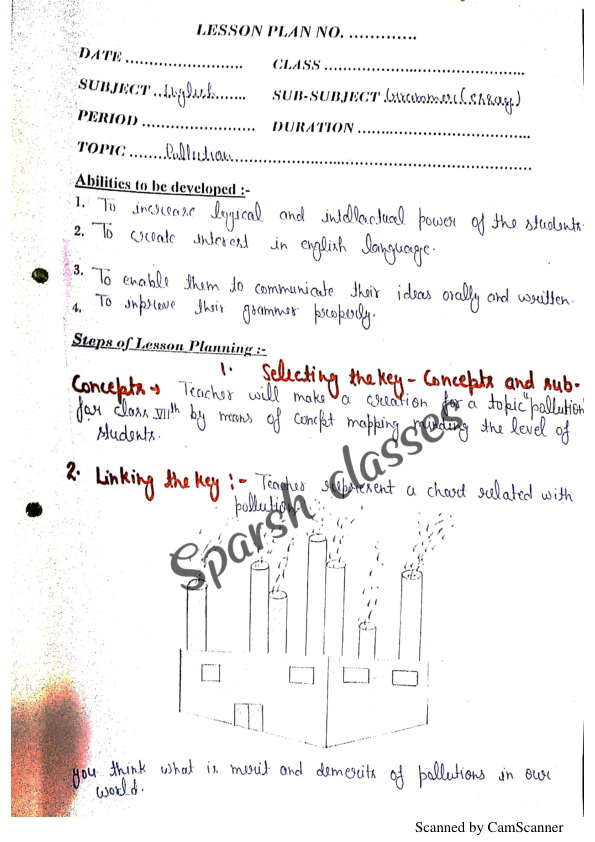 LESSON PLAN NO. .............
DATE ........................ CLASS ........................................
SUBJECT ..English....... SUB-SUBJECT Grammer(Essay)
PERIOD ....................... DURATION .................................
TOPIC ........Pollution..............................................................
Abilities to be developed :-
1. To increase logical and intellactual power of the students.
2. To create interest in english language.
3. To enable them to communicate their ideas orally and written.
4. To improve their grammer properly.
Steps of Lesson Planning :-
1. Selecting the key - Concepts and sub-
Concepts → Teacher will make a creation for a topic "pollution
for class VIIth by means of concept mapping minding the level of
students.
2. Linking the key :- Teacher represent a chart related with
pollution.
Sparsh classes
you think what is merit and demerits of pollutions in our
world.
Scanned by CamScanner